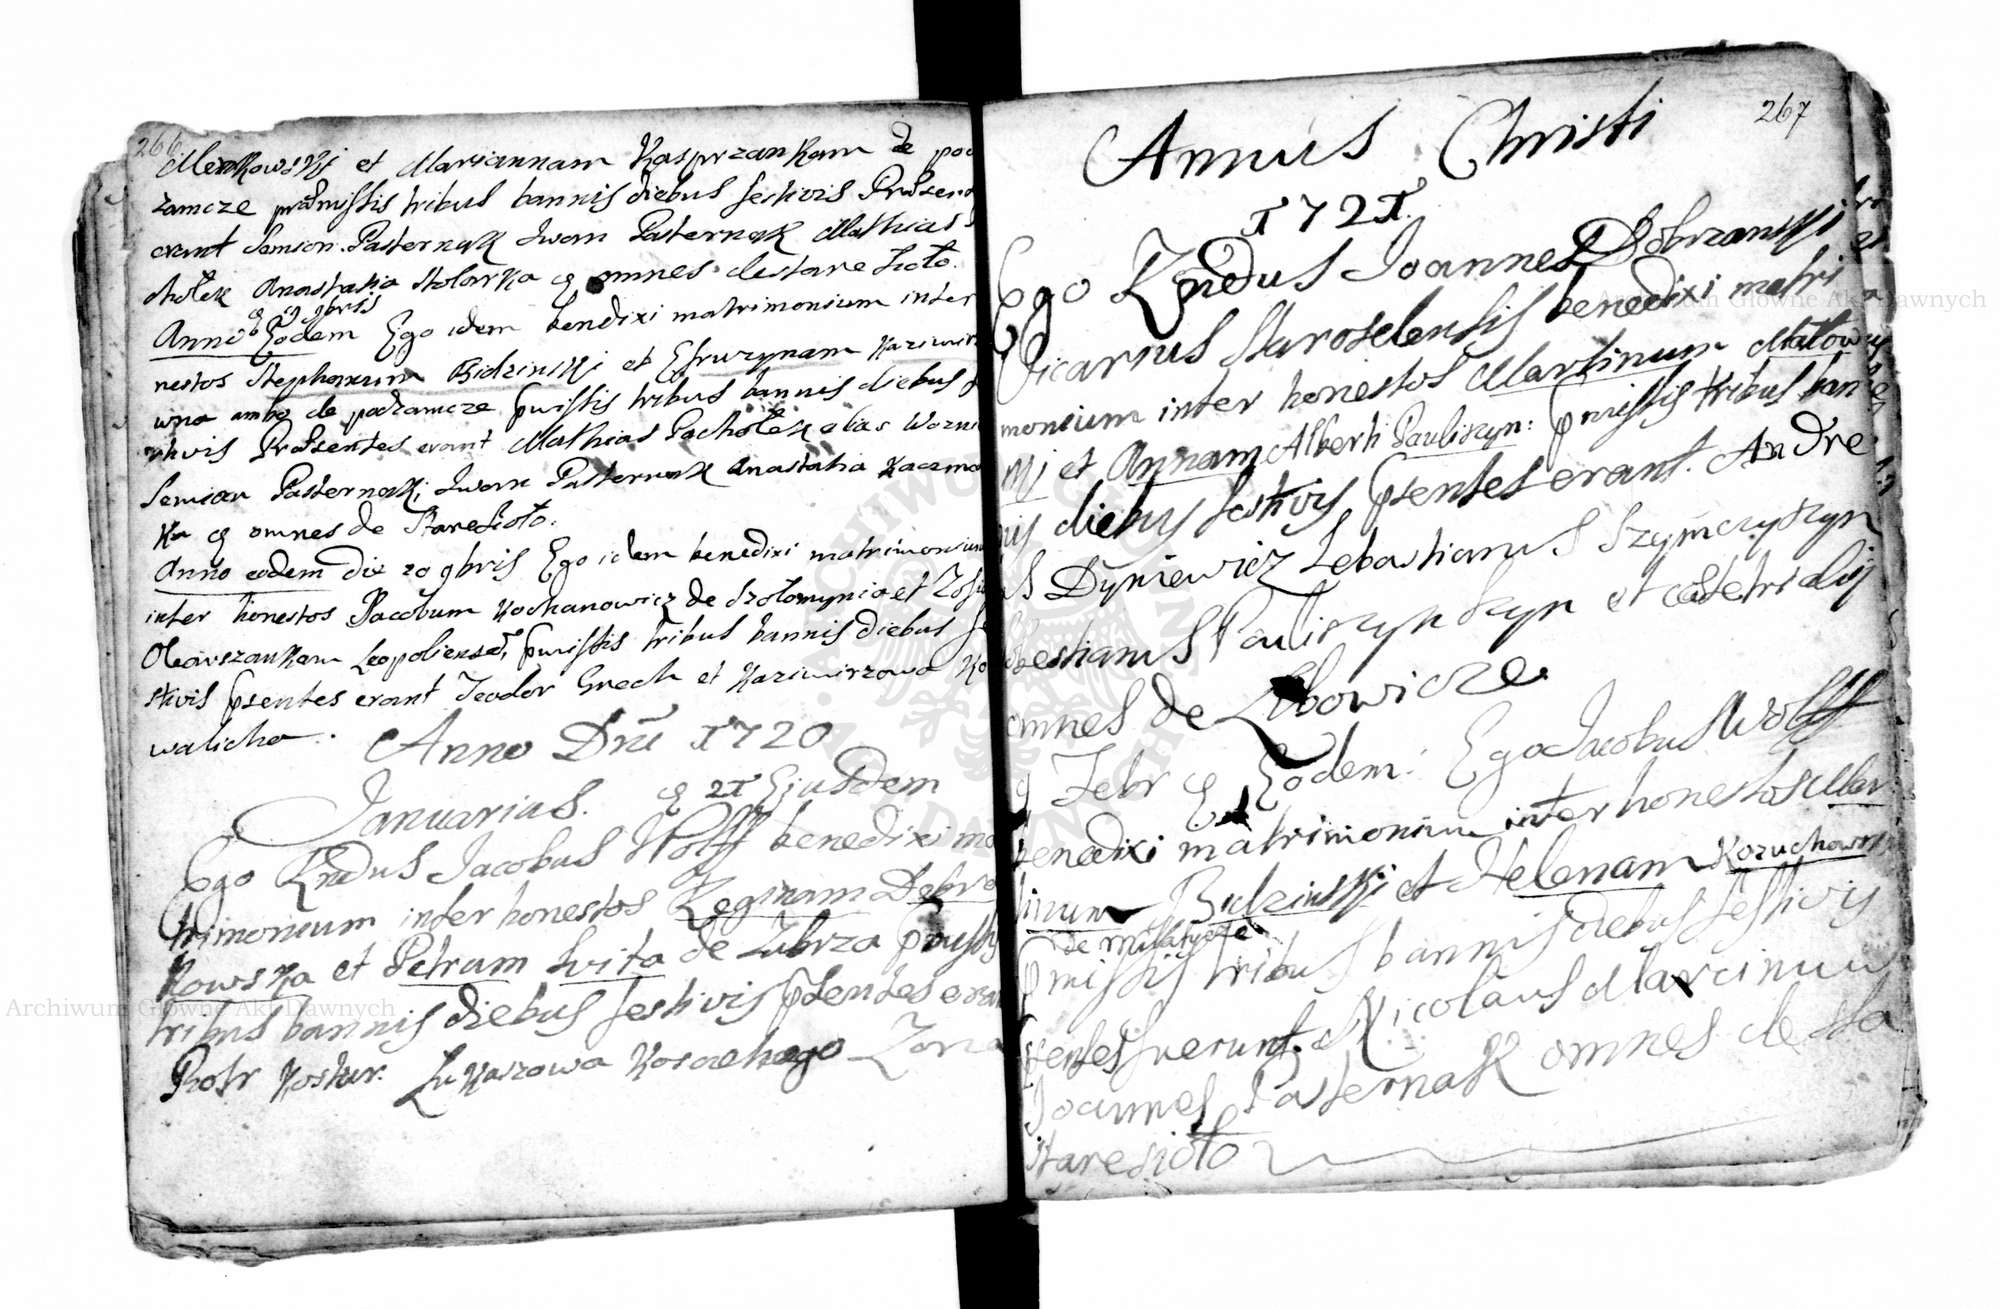 266
Menkowskj et Mariannam Kasprzankam de pod
zamcze præmissis tribus bannis diebus festivis Præsen
erant Semion Pasternak Iwan Pasternak Mathias
cholek Anastasia Stolarka et omnes de Stare Sioło.
9bris
Anno Eodem Ego idem benedixi matrimonium inter
nestos Stephanum Bidzinskj et Efruzynam Kazimir
wna ambo de podzamcze pmissis tribus bannis diebus
stivis Præsentes erant Mathias Pacholek alias Wozni
Semion Pasternak; Iwan Pasternak Anastasia Kaczma
ka et omnes de Staresioło.
Anno eodem die 20 9bris Ego idem benedixi matrimonium
inter honestos Jacobum Kochanowicz de Szołomynia et Zofi
Olearszankam Leopoliensē, pmissis tribus bannis diebus fe
stivis psentes erant Teodor Grech et Kazimirzowa Ko
walicha.
Anno Dni 1720
Januarius. 21 Ejusdem
Ego Rndus Jacobus Wolff benedixi ma
trimonium inter honestos Reginam Dąbro
kowska et Petrum de Zubrza pmissis
tribus bannis diebus festivis psentes eran
Piotr Koskur. Łukaszowa Zona
267
Annus Christi
1721.
Ego Rndus Joannes Dobrzanskj
Vicarius Staroselensis benedixi matri
monium inter honestos Martinum Małow
nj et Annam Alberti Pauliszyn: pmissis tribus ban
nis diebus festivis psentes erant. Andre
as Dyniewicz Sebastianus Szymczyszyn
bestianus Pauliszyn Szyn et cæteri alij
omnes de
Febr Eodem: Ego Jacobus Wolff
benedixi matrimonium inter honestos Mar
tinum Bidzinskj et Helenam Kozuchows
de
pmissis tribus bannis diebus festivis
psentes fuerunt. Nicolaus Marcinuw
Joannes Pasternak omnes de Sta
Staresioło
Archiwum Główne Akt Dawnych
Archiwum Główne Akt Dawnych
ARCHIWUM GŁÓWNE AKT DAWNYCH